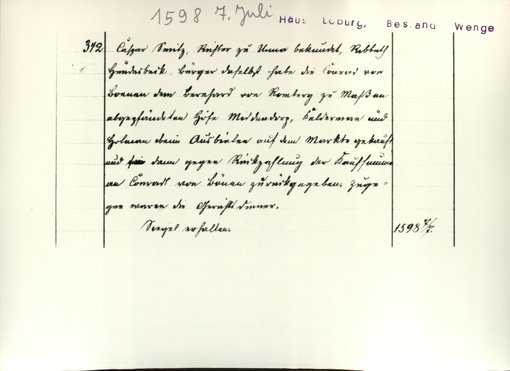 1598 7. Juli Haus Loburg, Bestand Wenge
392 Caspar Smitz, Richter zu Unna bekundet, Robbert
Hundesbeck, Bürger daselbst habe die Conrad von
Boenen dem Bernhard von Romberg zu Maßen
abgepfändeten Höfe Middendorp, Reldermann und
Holman beim Ausbieten auf dem Markte gekauft
und dann gegen Rückzahlung der Kaufsumme
an Conradt von Bönen zurückgegeben. Zuge-
gen waren die Gerichtsdiener.
Siegel erhalten. 1598 7/7.